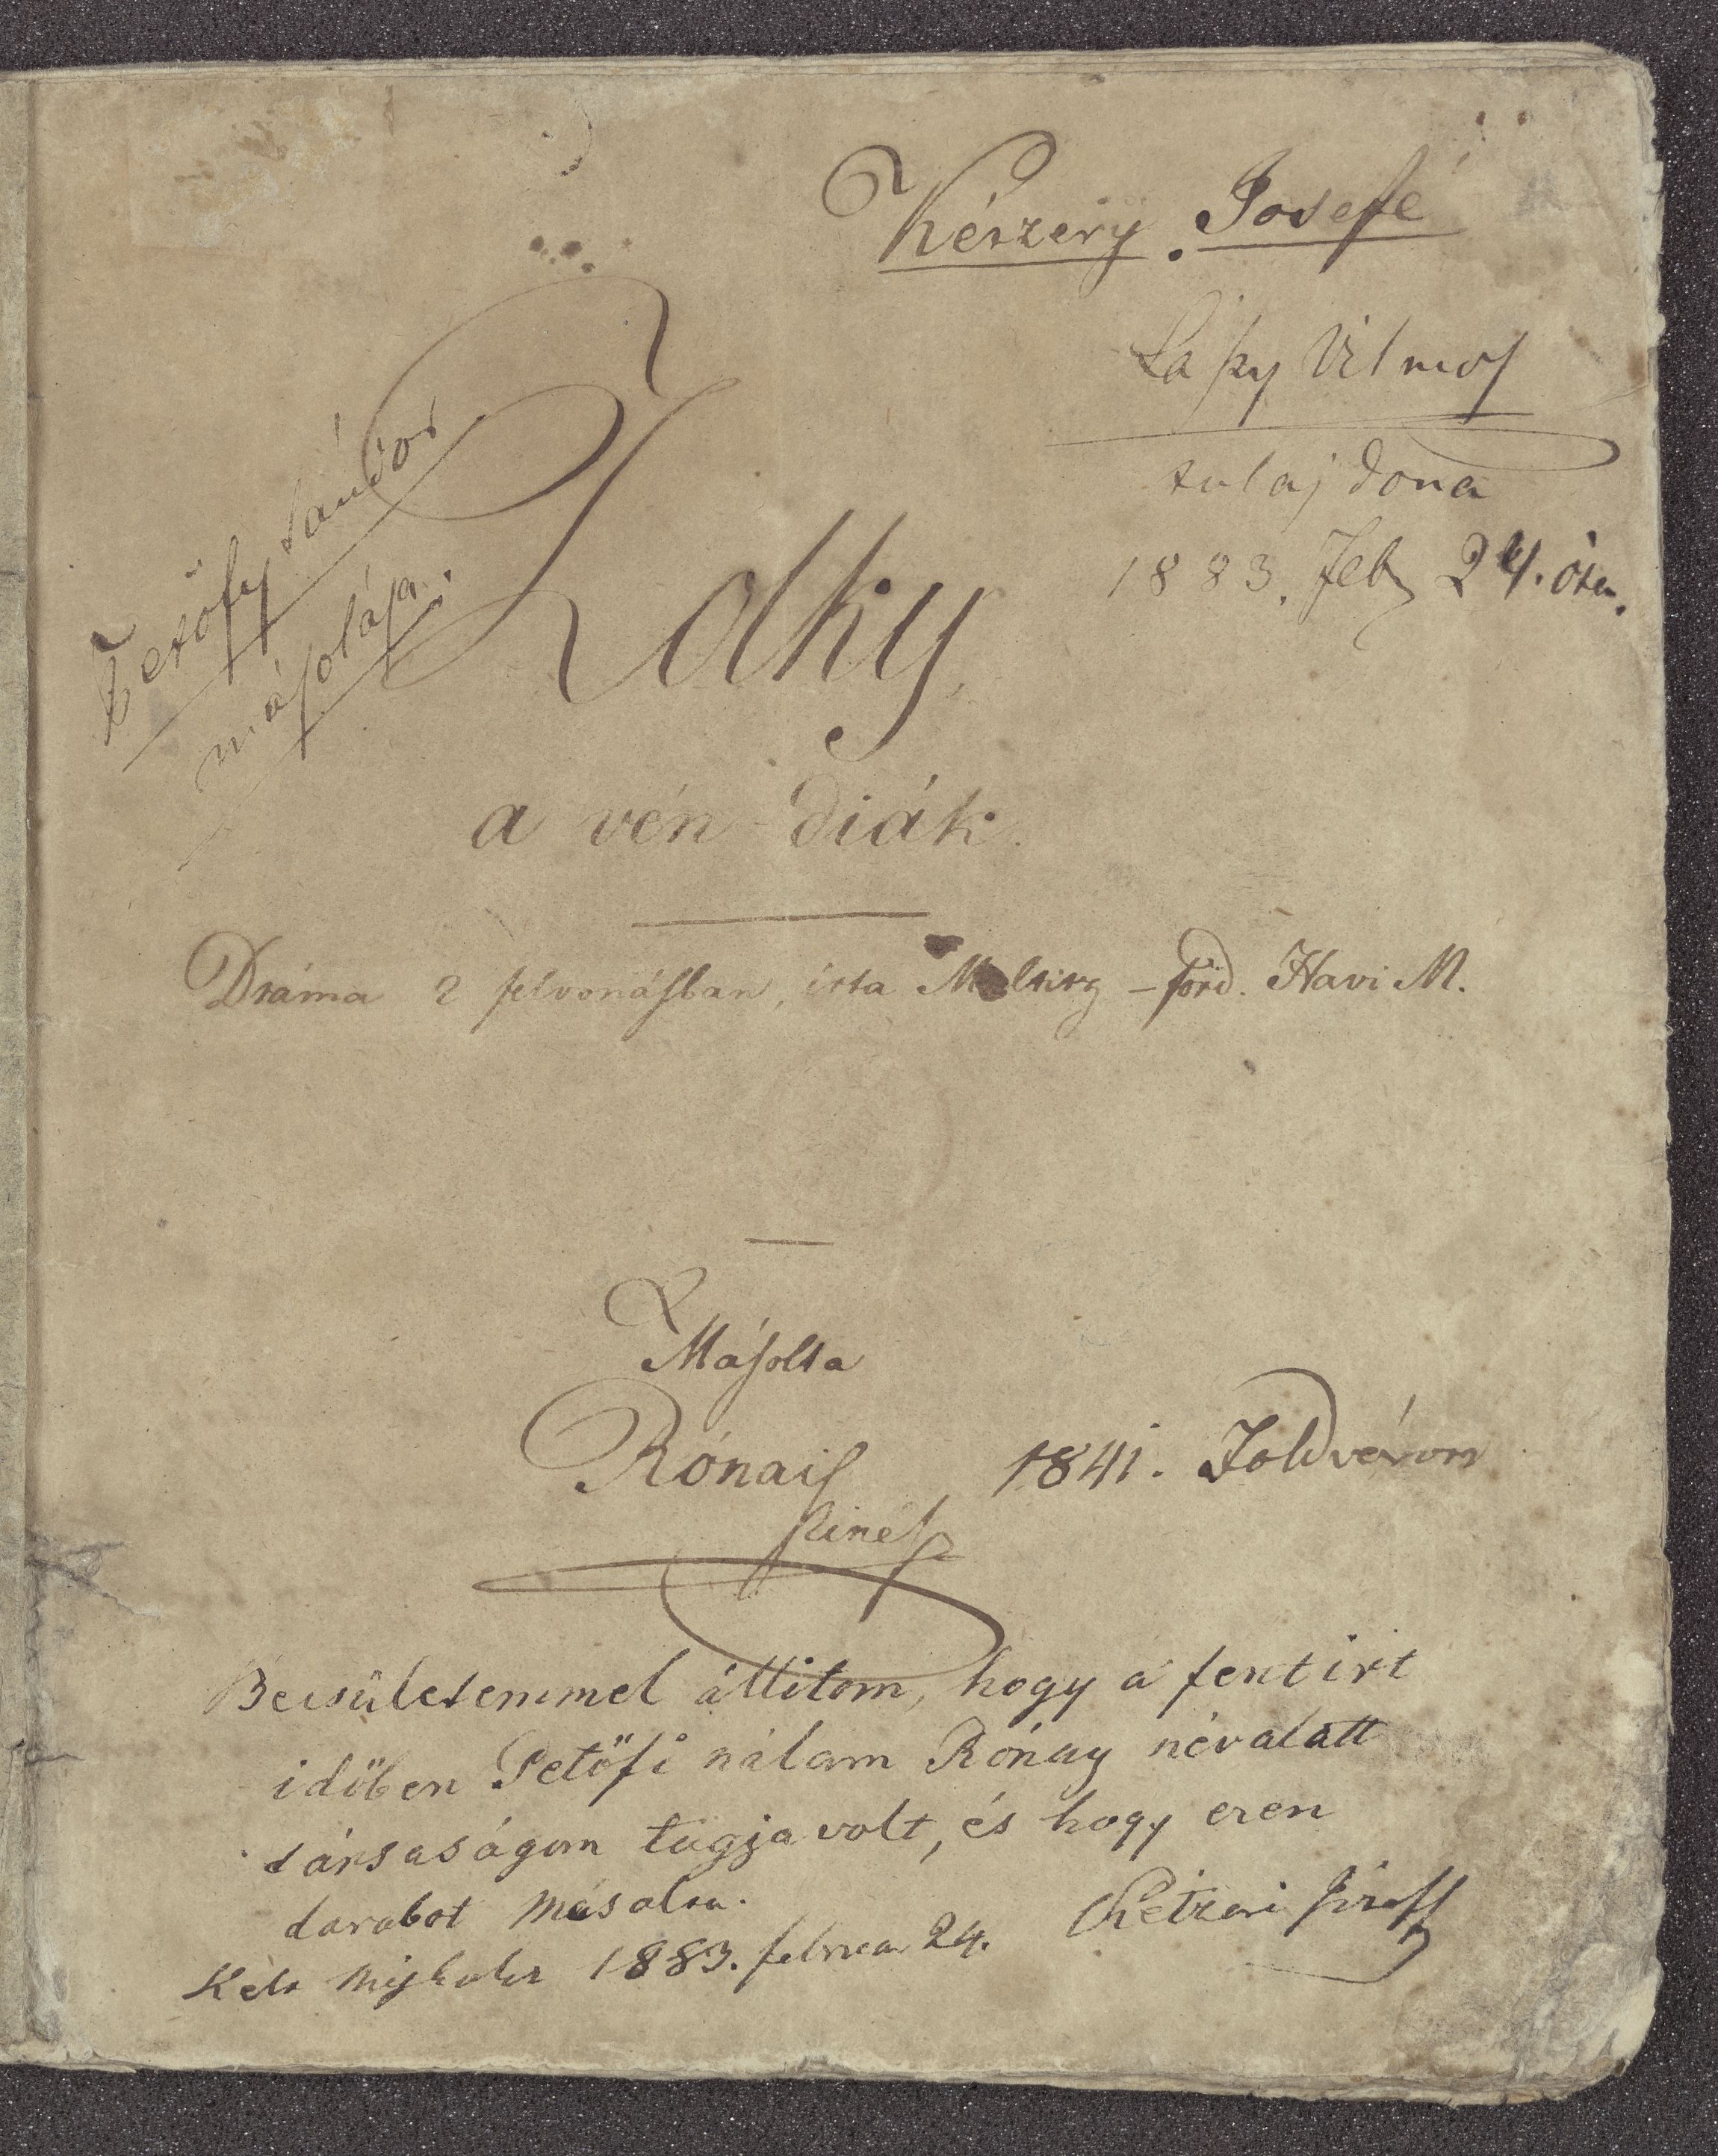 Készery Josefé
Lapy Vilmos
tulajdona
1883. Feb 24. én.
Petőfy Sándor
másolása.
Zolky
a vén diák.
Dráma 2 felvonásban, irta Maltitz – ford. Havi M.
Másolta
Rónai S
szinész
1841. Földváron
Becsületemmel állitom, hogy a fent irt
időben Petőfi nálam Rónay név alatt
társaságom tagja volt, és hogy ezen
darabot másolta.
Kelt Miskolcz 1883. februar 24.